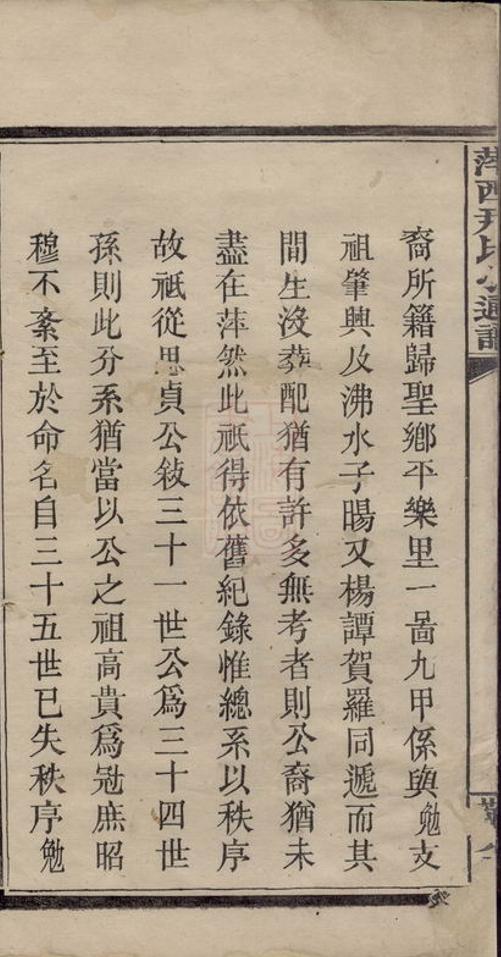 萍西尹氏小通譜
裔所籍歸聖鄉平樂里一啚九甲係與勉支
祖肇興及沸水子暘又楊譚賀羅同遞而其
間生沒葬配猶有許多無考者則公裔猶未
盡在萍然此祇得依舊紀錄惟總系以秩序
故祗從思貞公敍三十一世公爲三十四世
孫則此分系猶當以公之祖高貴爲冠庶昭
穆不紊至於命名自三十五世已失秩序勉